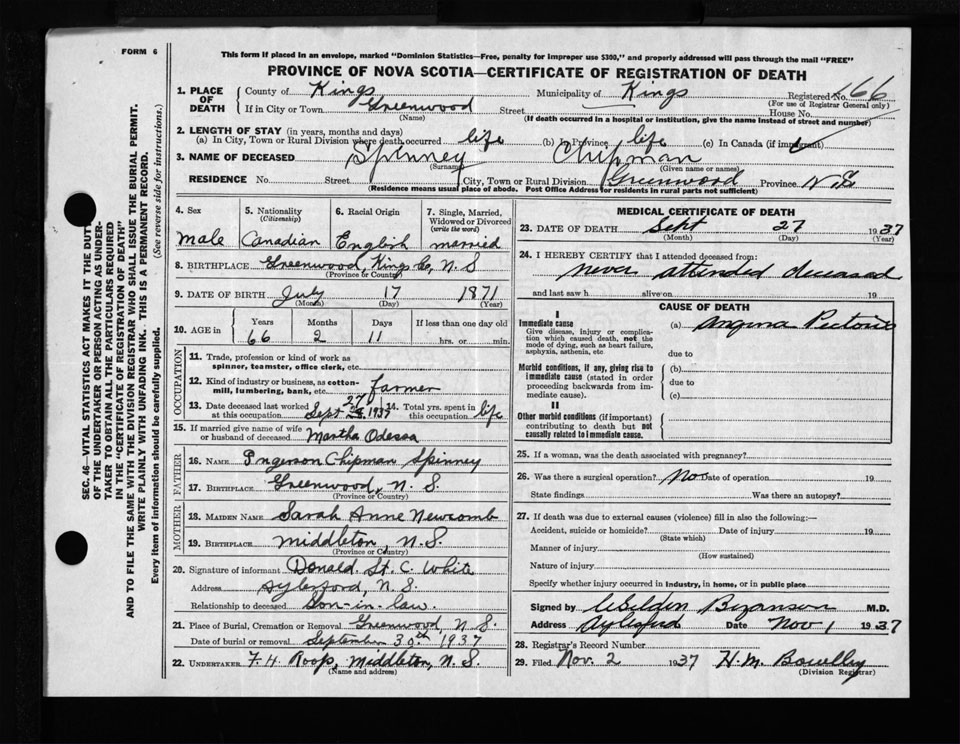 FORM 6
This form if placed in an envelope, marked "Dominion Statistics—Free, penalty for improper use $300," and properly addressed will pass through the mail "FREE"
PROVINCE OF NOVA SCOTIA—CERTIFICATE OF REGISTRATION OF DEATH
1. PLACE OF DEATH County of Kings Municipality of Kings Registered No. 66
(For use of Registrar General only)
If in City or Town Greenwood Street House No.
(Name) (If death occurred in a hospital or institution, give the name instead of street and number)
2. LENGTH OF STAY (in years, months and days)
(a) In City, Town or Rural Division where death occurred life (b) In Province life (c) In Canada (if immigrant)
3. NAME OF DECEASED Spinney Chipman
(Surname) (Given name or names)
RESIDENCE No. Street City, Town or Rural Division Greenwood Province N S
(Residence means usual place of abode. Post Office Address for residents in rural parts not sufficient)
4. Sex 5. Nationality (Citizenship) 6. Racial Origin 7. Single, Married, Widowed or Divorced (write the word)
Male Canadian English married
8. BIRTHPLACE Greenwood, Kings Co, N. S
(Province or Country)
9. DATE OF BIRTH July 17 1871
(Month) (Day) (Year)
10. AGE in Years Months Days If less than one day old
66 2 11 hrs. or min.
OCCUPATION
11. Trade, profession or kind of work as spinner, teamster, office clerk, etc.
12. Kind of industry or business, as cotton-mill, lumbering, bank, etc. farmer
13. Date deceased last worked at this occupation Sept 27 1937 14. Total yrs. spent in this occupation life
15. If married give name of wife or husband of deceased Martha Odessa
FATHER
16. NAME Ingerson Chipman Spinney
17. BIRTHPLACE Greenwood, N. S.
(Province or Country)
MOTHER
18. MAIDEN NAME Sarah Anne Newcomb
19. BIRTHPLACE Middleton, N.S.
(Province or Country)
20. Signature of informant Donald St. C. White
Address Aylesford, N. S.
Relationship to deceased Son-in-law.
21. Place of Burial, Cremation or Removal Greenwood, N. S.
Date of burial or removal September 30th 1937
22. UNDERTAKER F. H. Roop, Middleton, N. S.
(Name and address)
MEDICAL CERTIFICATE OF DEATH
23. DATE OF DEATH Sept 27 1937
(Month) (Day) (Year)
24. I HEREBY CERTIFY that I attended deceased from:
never attended deceased
and last saw h alive on 19
CAUSE OF DEATH
I
Immediate cause (a) Angina Pectoris
Give disease, injury or complication which caused death, not the mode of dying, such as heart failure, asphyxia, asthenia, etc
due to
Morbid conditions, if any, giving rise to immediate cause (stated in order proceeding backwards from immediate cause).
(b)
due to
(c)
II
Other morbid conditions (if important) contributing to death but not causally related to immediate cause.
25. If a woman, was the death associated with pregnancy?
26. Was there a surgical operation? No Date of operation 19
State findings Was there an autopsy?
27. If death was due to external causes (violence) fill in also the following:—
Accident, suicide or homicide? Date of injury 19
(State which)
Manner of injury
(How sustained)
Nature of injury
Specify whether injury occurred in industry, in home, or in public place
Signed by M.D.
Address Aylesford Date Nov 1 1937
28. Registrar's Record Number
29. Filed Nov. 2 1937 H. M.
(Division Registrar)
SEC. 46—VITAL STATISTICS ACT MAKES IT THE DUTY
OF THE UNDERTAKER OR PERSON ACTING AS UNDER-
TAKER TO OBTAIN ALL THE PARTICULARS REQUIRED
IN THE "CERTIFICATE OF REGISTRATION OF DEATH"
AND TO FILE THE SAME WITH THE DIVISION REGISTRAR WHO SHALL ISSUE THE BURIAL PERMIT.
WRITE PLAINLY WITH UNFADING INK. THIS IS A PERMANENT RECORD.
Every item of information should be carefully supplied.
(See reverse side for instructions.)